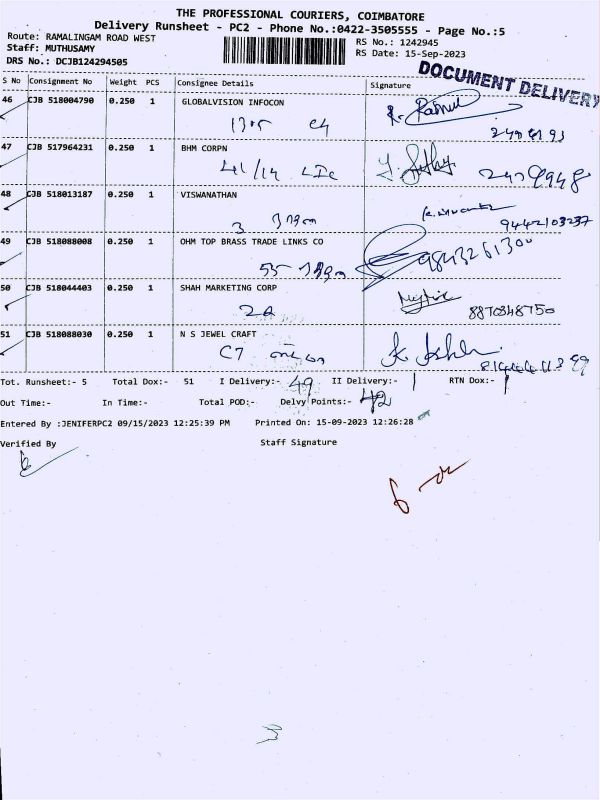 THE PROFESSIONAL COURIERS, COIMBATORE
Delivery Runsheet - PC2 - Phone No.:0422-3505555 - Page No.:5
Route: RAMALINGAM ROAD WEST
RS No.: 1242945
Staff: MUTHUSAMY
RS Date: 15-Sep-2023
DRS No.: DCJB124294505
DOCUMENT DELIVERY
S No Consignment No Weight PCS Consignee Details Signature
46 CJB 518004790 0.250 1 GLOBALVISION INFOCON
47 CJB 517964231 0.250 1 BHM CORPN
41/14 LIC
48 CJB 518013187 0.250 1 VISWANATHAN
3
9442103237
49 CJB 518088008 0.250 1 OHM TOP BRASS TRADE LINKS CO
55
50 CJB 518044403 0.250 1 SHAH MARKETING CORP
2A
8870848750
51 CJB 518088030 0.250 1 N S JEWEL CRAFT
C7
Tot. Runsheet:- 5 Total Dox:- 51 I Delivery:- 49 II Delivery:- 1 RTN Dox:- 1
Out Time:- In Time:- Total POD:- Delvy Points:- 42
Entered By :JENIFERPC2 09/15/2023 12:25:39 PM Printed On: 15-09-2023 12:26:28
Verified By Staff Signature